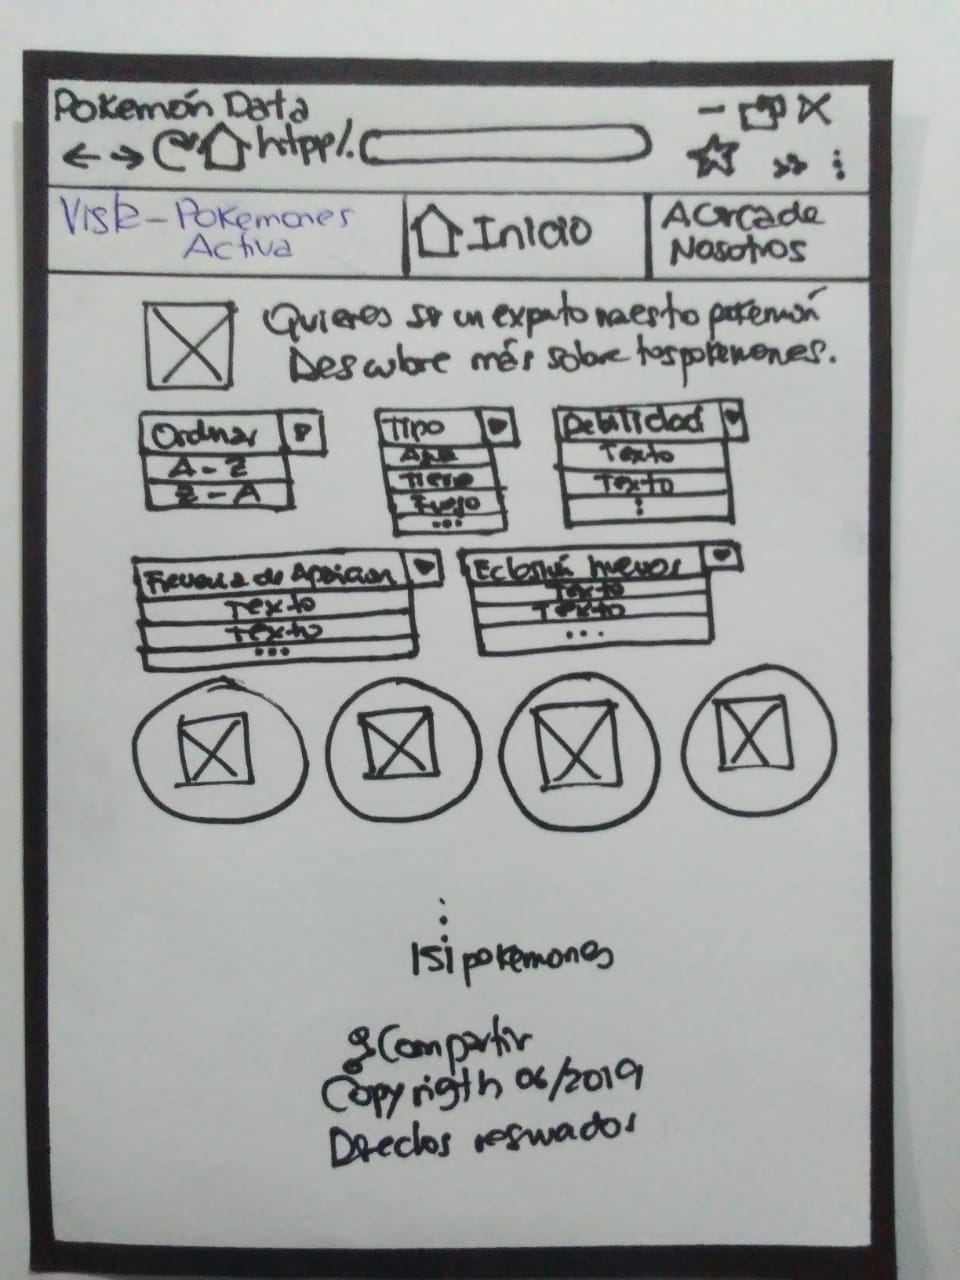 Pokemón Data
htpp/.
Vista-Pokemones
Activa
Inicio
Acerca de
Nosotros
Quieres ser un experto maestro pokemón
Descubre más sobre los pokemones.
Ordenar
A-Z
Z-A
Tipo
Agua
Tierra
Fuego
...
Debilidad
Texto
Texto
Texto
Texto
...
Eclosión huevos
Texto
Texto
...
151 pokemones
Compartir
Copyrigth 06/2019
Derechos reservados